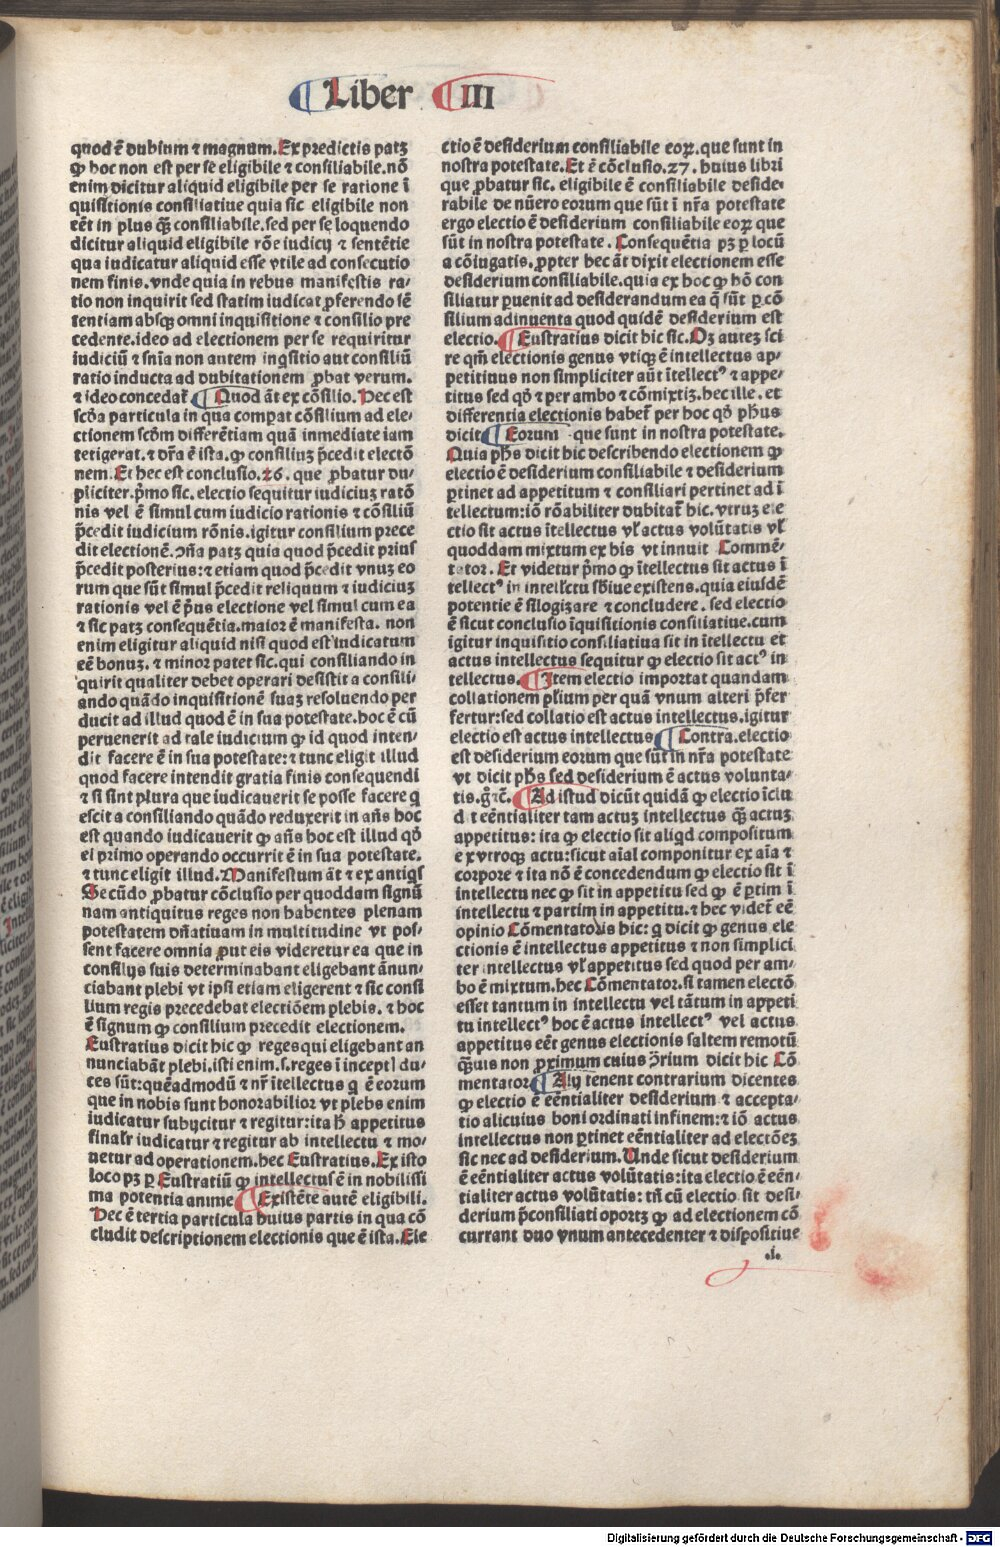 Liber III
quod ē dubium ⁊ magnum. Ex predictis patꝫ
ꝙ hoc non est per se eligibile ⁊ consiliabile. nō
enim dicitur aliquid eligibile per se ratione ī
quisitionis consiliatiue quia sic eligibile non
eēt in plus q̄ꝫ consiliabile. sed per se loquendo
dicitur aliquid eligibile rōe iudicij ⁊ sentētie
qua iudicatur aliquid esse vtile ad consecutio
nem finis. vnde quia in rebus manifestis ra-
tio non inquirit sed statim iudicat ꝓferendo sē
tentiam absqꝫ omni inquisitione ⁊ consilio pre
cedente. ideo ad electionem per se requiritur
iudiciū ⁊ sn̄ia non autem inq̄sitio aut consiliū
ratio inducta ad dubitationem ꝓbat verum.
⁊ ideo concedat᷑ ¶ Quod āt ex cōsilio. Hec est
scd̄a particula in qua comꝑat cōsilium ad ele-
ctionem scd̄m differētiam quā inmediate iam
tetigerat. ⁊ dr̄a ē ista. ꝙ consiliuꝫ p̄cedit electō
nem. Et hec est conclusio. 26. que ꝓbatur du-
pliciter. p̄mo sic. electio sequitur iudiciuꝫ ratō
nis vel ē simul cum iudicio rationis ⁊ cōsiliū
p̄cedit iudicium rōnis. igitur consilium prece
dit electionē. ↄn̄a patꝫ quia quod p̄cedit prius
p̄cedit posterius: ⁊ etiam quod p̄cedit vnuꝫ eo
rum que sūt simul p̄cedit reliquum ⁊ iudiciuꝫ
rationis vel ē p̄us electione vel simul cum ea
⁊ sic patꝫ consequētia. maior ē manifesta. non
enim eligitur aliquid nisi quod est iudicatum
eē bonuꝫ. ⁊ minor patet sic. qui consiliando in
quirit qualiter debet operari desistit a consili-
ando quādo inquisitionē suaꝫ resoluendo per
ducit ad illud quod ē in sua potestate. hoc ē cū
peruenerit ad tale iudicium ꝙ id quod inten-
dit facere ē in sua potestate: ⁊ tunc eligit illud
quod facere intendit gratia finis consequendi
⁊ si sint plura que iudicauerit se posse facere q̄
escit a consiliando quādo reduxerit in an̄s hoc
est quando iudicauerit ꝙ an̄s hoc est illud qd̄
ei primo operando occurrit ē in sua potestate.
⁊ tunc eligit illud. Manifestum āt ⁊ ex antiq̄s
Secūdo ꝓbatur cōclusio per quoddam signū
nam antiquitus reges non habentes plenam
potestatem dn̄atiuam in multitudine vt pos-
sent facere omnia ꝓut eis videretur ea que in
consilijs suis determinabant eligebant ānun-
ciabant plebi vt ipsi etiam eligerent ⁊ sic consi
lium regis precedebat electiōem plebis. ⁊ hoc
ē signum ꝙ consilium precedit electionem.
Eustratius dicit hic ꝙ reges qui eligebant an
nunciabāt plebi. isti enim. s. reges ī incepti du-
ces sūt: quēadmodū ⁊ nr̄ ītellectus q̄ ē eorum
que in nobis sunt honorabilior vt plebs enim
iudicatur subijcitur ⁊ regitur: ita h̄ appetitus
finalr̄ iudicatur ⁊ regitur ab intellectu ⁊ mo-
uetur ad operationem. hec Eustratius. Ex isto
loco pꝫ ꝑ Eustratiū ꝙ intellectus ē in nobilissi
ma potentia anime ¶ Existēte autē eligibili.
Hec ē tertia particula huius partis in qua cō
cludit descriptionem electionis que ē ista. Ele
ctio ē desiderium consiliabile eoꝝ. que sunt in
nostra potestate. Et ē cōclusio. 27. huius libri
que ꝓbatur sic. eligibile ē consiliabile deside-
rabile de nūero eorum que sūt ī nr̄a potestate
ergo electio ē desiderium consiliabile eoꝝ que
sūt in nostra potestate. Consequētia pꝫ ꝑ locū
a cōiugatis. ꝓpter hec āt dixit electionem esse
desiderium consiliabile. quia ex hoc ꝙ hō con
siliatur ꝑuenit ad desiderandum ea q̄ sūt ꝑ cō
silium adinuenta quod quidē desiderium est
electio. ¶ Eustratius dicit hic sic. Oꝫ auteꝫ sci
re qm̄ electionis genus vtiqꝫ ē intellectus ap-
petitiuus non simpliciter aūt ītellectꝰ ⁊ appe-
titus sed qd̄ ⁊ per ambo ⁊ cōmixtiꝫ. hec ille. et
differentia electionis habet᷑ per hoc qd̄ ph̄us
dicit ¶ Eorum que sunt in nostra potestate.
Quia ph̄s dicit hic describendo electionem ꝙ
electio ē desiderium consiliabile ⁊ desiderium
ꝑtinet ad appetitum ⁊ consiliari pertinet ad ī
tellectum: iō rōabiliter dubitat᷑ hic. vtruꝫ ele
ctio sit actus ītellectus vl̄ actus volūtatis vl̄
quoddam mixtum ex his vt innuit Commē-
tator. Et videtur p̄mo ꝙ ītellectus sit actus ī
tellectꝰ in intellectu sb̄iue existens. quia eiusdē
potentie ē silogizare ⁊ concludere. sed electio
ē sicut conclusio īquisitionis consiliatiue. cum
igitur inquisitio consiliatiua sit in ītellectu et
actus intellectus sequitur ꝙ electio sit actꝰ in
tellectus. ¶ Item electio importat quandam
collationem pl̄ium per quā vnum alteri p̄fer
fertur: sed collatio est actus intellectus. igitur
electio est actus intellectus ¶ Contra. electio
est desiderium eorum que sūt in nr̄a potestate
vt dicit ph̄s sed desiderium ē actus volunta-
tis. g̊ ⁊c̄. ¶ Ad istud dicūt quidā ꝙ electio īclu
d t eēntialiter tam actuꝫ intellectus q̄ꝫ actuꝫ
appetitus: ita ꝙ electio sit aliq̄d compositum
ex vtroqꝫ actu: sicut aīal componitur ex aīa ⁊
corpore ⁊ ita nō ē concedendum ꝙ electio sit ī
intellectu nec ꝙ sit in appetitu sed ꝙ ē ꝑtim ī
intellectu ⁊ partim in appetitu. ⁊ hec videt᷑ eē
opinio Cōmentatoris hic: q̄ dicit ꝙ genus ele
ctionis ē intellectus appetitus ⁊ non simplici
ter intellectus vl̄ appetitus sed quod per am-
bo ē mixtum. hec Cōmentator. si tamen electō
esset tantum in intellectu vel tātum in appeti
tu intellectꝰ hoc ē actus intellectꝰ vel actus
appetitus eēt genus electionis saltem remotū
q̄ꝫuis non ꝓximum cuius ↄ̄rium dicit hic Cō
mentator ¶ Alij tenent contrarium dicentes
ꝙ electio ē eēntialiter desiderium ⁊ accepta-
tio alicuius boni ordinati in finem: ⁊ iō actus
intellectus non ꝑtinet eēntialiter ad electōeꝫ
sic nec ad desiderium. Unde sicut desiderium
ē eēntialiter actus volūtatis: ita electio ē eēn-
tialiter actus volūtatis: tn̄ cū electio sit desi-
derium p̄consiliati oportꝫ ꝙ ad electionem cō
currant duo vnum antecedenter ⁊ dispositiue
.i.
Digitalisierung gefördert durch die Deutsche Forschungsgemeinschaft - DFG